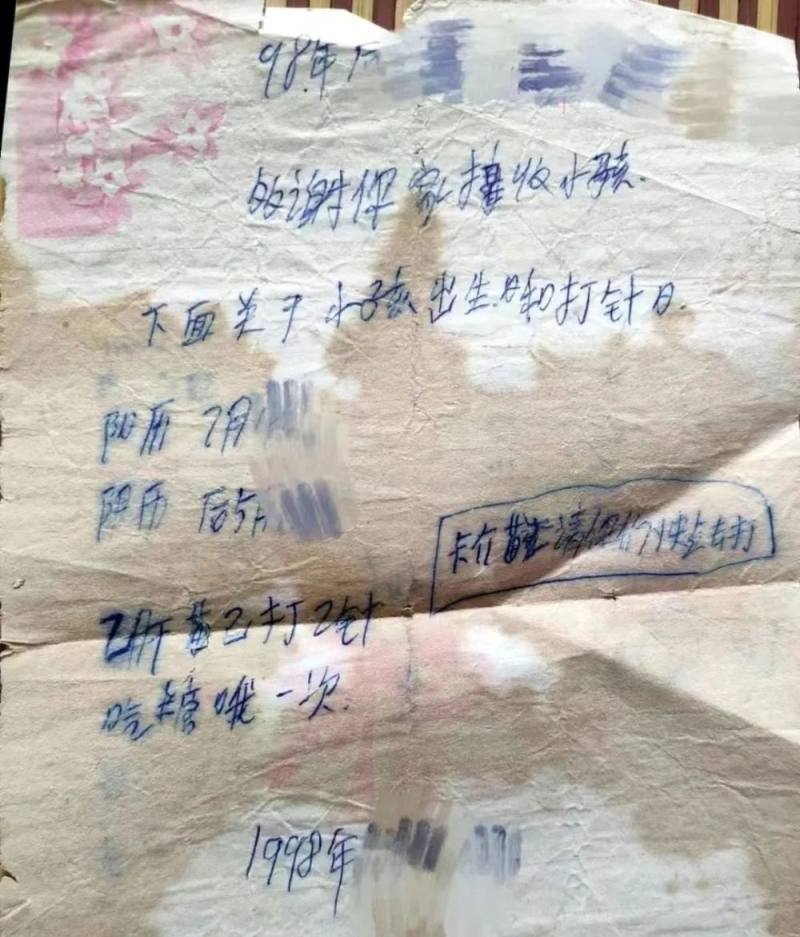 98.年
感谢你家接收小孩.
下面关于小孩出生.日和打针日.
阳历 7月
阴历 后5月
卡介苗请你们快去打
乙肝苗已打2针
吃糖哦一次.
1998年